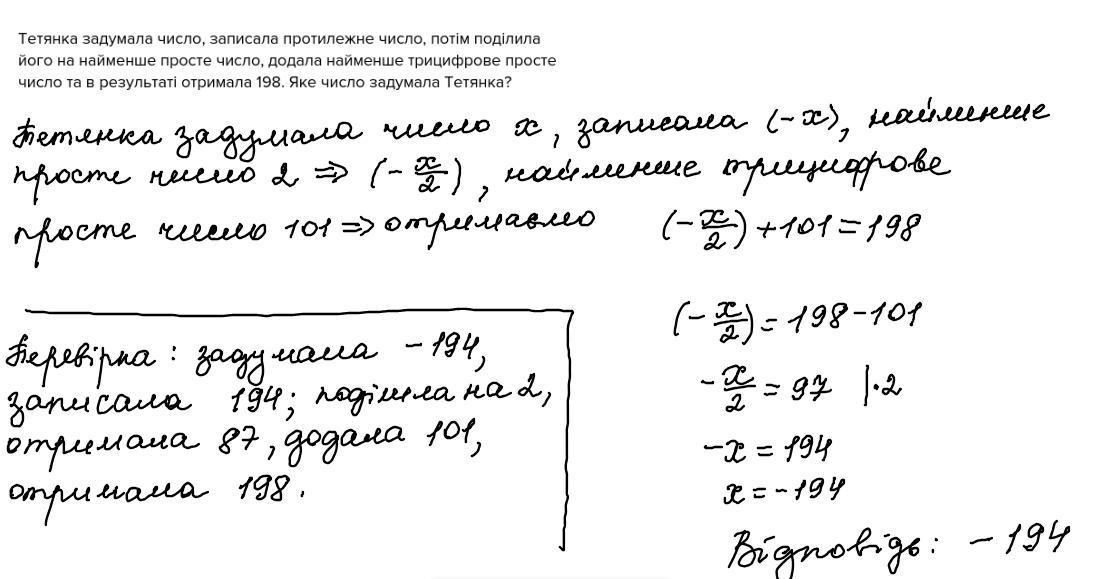 Тетянка задумала число, записала протилежне число, потім поділила
його на найменше просте число, додала найменше трицифрове просте
число та в результаті отримала 198. Яке число задумала Тетянка?
Тетянка задумала число x, записала (-x), найменше
просте число 2 => (-x/2), найменше трицифрове
просте число 101 => отримаємо (-x/2)+101=198
(-x/2)=198-101
-x/2=97 |·2
-x=194
x=-194
Відповідь: -194
Перевірка: задумала -194,
записала 194; поділила на 2,
отримала 87, додала 101,
отримала 198.